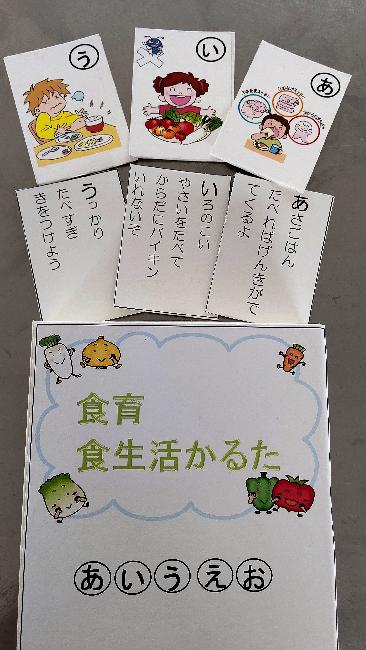 う
い
あ
うっかり
たべすぎ
きをつけよう
いろのこい
やさいをたべて
からだにバイキン
いれないぞ
あさごはん
たべればげんきがで
てくるよ
食育
食生活かるた
あいうえお